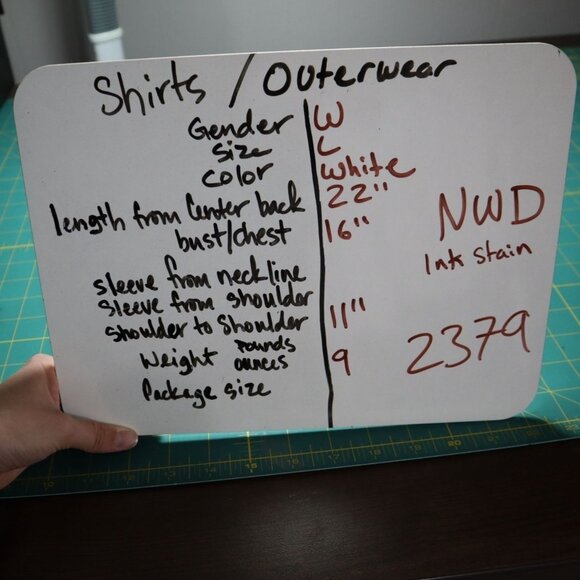 Shirts / Outerwear
Gender W
size L
color white
length from Center back 22"
bust/chest 16"
NWD
Ink stain
sleeve from neckline
sleeve from shoulder
shoulder to Shoulder 11"
Weight Pounds
ounces 9
2379
Package size